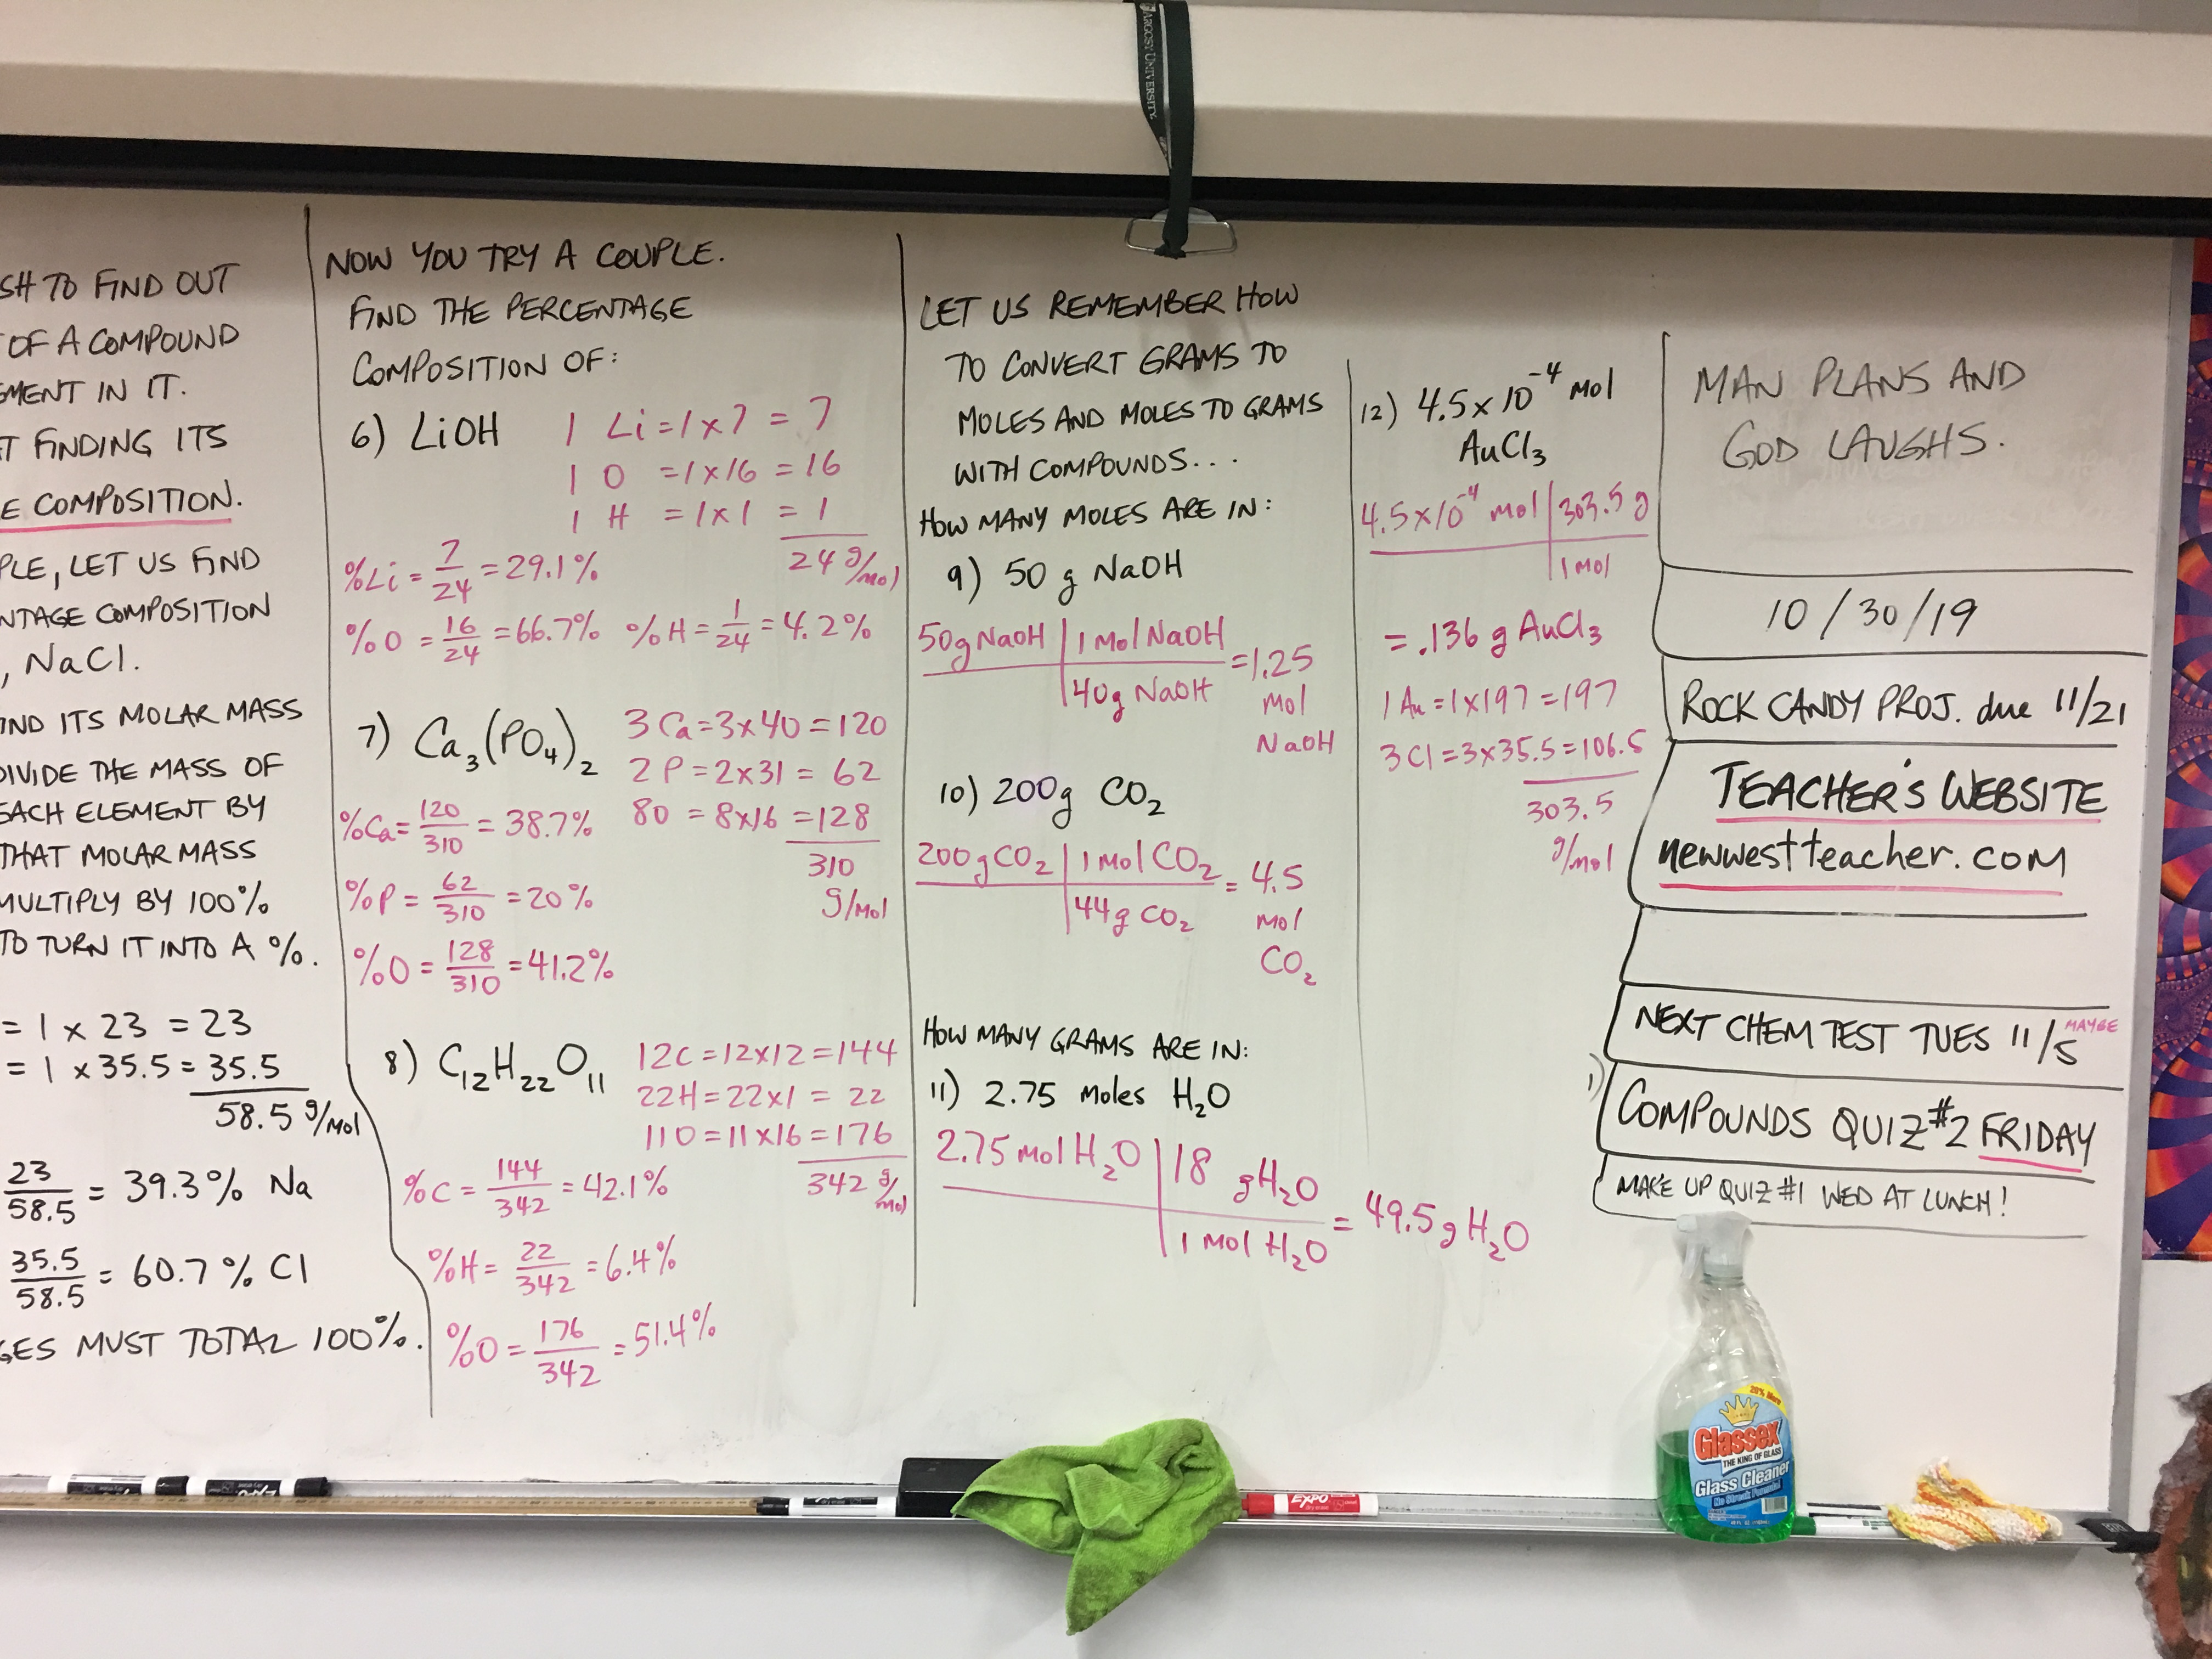 ARGOSY UNIVERSITY
SH TO FIND OUT
OF A COMPOUND
EMENT IN IT.
T FINDING ITS
E COMPOSITION.
PLE, LET US FIND
NTAGE COMPOSITION
, NaCl.
IND ITS MOLAR MASS
DIVIDE THE MASS OF
EACH ELEMENT BY
THAT MOLAR MASS
MULTIPLY BY 100%
TO TURN IT INTO A %.
= 1 x 23 = 23
= 1 x 35.5 = 35.5
58.5 g/mol
23/58.5 = 39.3% Na
35.5/58.5 = 60.7% Cl
GES MUST TOTAL 100%.
NOW YOU TRY A COUPLE.
FIND THE PERCENTAGE
COMPOSITION OF:
6) LiOH 1 Li = 1 x 7 = 7
1 O = 1 x 16 = 16
1 H = 1 x 1 = 1
24 g/mol
%Li = 7/24 = 29.1%
%O = 16/24 = 66.7% %H = 1/24 = 4.2%
7) Ca₃(PO₄)₂ 3 Ca = 3 x 40 = 120
2 P = 2 x 31 = 62
8O = 8x16 = 128
310
g/mol
%Ca = 120/310 = 38.7%
%P = 62/310 = 20%
%O = 128/310 = 41.2%
8) C₁₂H₂₂O₁₁ 12C = 12x12 = 144
22H = 22x1 = 22
11O = 11x16 = 176
342 g/mol
%C = 144/342 = 42.1%
%H = 22/342 = 6.4%
%O = 176/342 = 51.4%
LET US REMEMBER HOW
TO CONVERT GRAMS TO
MOLES AND MOLES TO GRAMS
WITH COMPOUNDS...
HOW MANY MOLES ARE IN:
9) 50 g NaOH
50g NaOH | 1 mol NaOH
40g NaOH
= 1.25
mol
NaOH
10) 200g CO₂
200g CO₂ | 1 mol CO₂
44g CO₂
= 4.5
mol
CO₂
HOW MANY GRAMS ARE IN:
11) 2.75 moles H₂O
2.75 mol H₂O | 18 g H₂O
1 mol H₂O
= 49.5 g H₂O
12) 4.5 x 10⁻⁴ mol
AuCl₃
4.5x10⁻⁴ mol | 303.5 g
1 mol
= .136 g AuCl₃
1 Au = 1x197 = 197
3 Cl = 3x35.5 = 106.5
303.5
g/mol
MAN PLANS AND
GOD LAUGHS.
10/30/19
ROCK CANDY PROJ. due 11/21
TEACHER'S WEBSITE
newwestteacher.com
NEXT CHEM TEST TUES 11/5 MAYBE
1)
COMPOUNDS QUIZ #2 FRIDAY
MAKE UP QUIZ #1 WED AT LUNCH!
EXPO
EXPO
20% More
Glassex
THE KING OF GLASS
Glass Cleaner
No Streak Formula